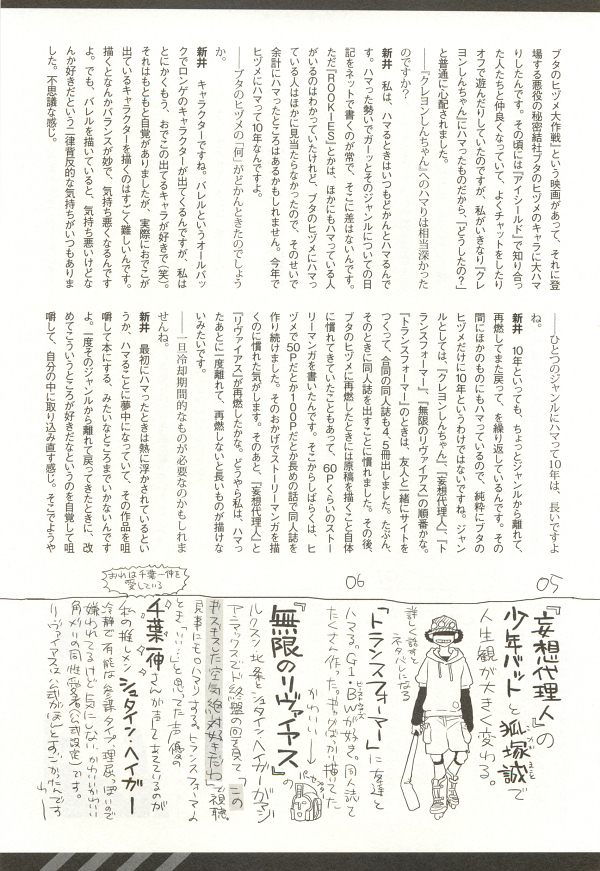 ブタのヒヅメ大作戦』という映画があって、それに登
場する悪役の秘密結社ブタのヒヅメのキャラに大ハマ
りしたんです。その頃には『アイシールド』で知り合っ
た人たちと仲良くなっていて、よくチャットをしたり
オフで遊んだりしていたのですが、私がいきなり『クレ
ヨンしんちゃん』にハマったものだから、「どうしたの?」
と普通に心配されました。
――『クレヨンしんちゃん』へのハマりは相当深かった
のですか?
新井 私は、ハマるときはいつもどかんとハマるんで
す。ハマった勢いでガーッとそのジャンルについての日
記をネットで書くのが常で、そこに差はないんです。
ただ『ROOKIES』とかは、ほかにもハマっている人
がいるのはわかっていたけれど、ブタのヒヅメにハマっ
ている人はほかに見当たらなかったので、そのせいで
余計にハマったところはあるかもしれません。今年で
ヒヅメにハマって10年なんですよ。
――ブタのヒヅメの「何」がどかんときたのでしょう
か。
新井 キャラクターですね。バレルというオールバッ
クでロンゲのキャラクターが出てくるんですが、私は
とにかくもう、おでこの出てるキャラが好きで(笑)。
それはもともと自覚がありましたが、実際におでこが
出ているキャラクターを描くのはすごく難しいんです。
描くとなんかバランスが妙で、気持ち悪くなるんです
よ。でも、バレルを描いていると、気持ち悪いけどな
んか好きだという二律背反的な気持ちがいつもありま
した。不思議な感じ。
――ひとつのジャンルにハマって10年は、長いですよ
ね。
新井 10年といっても、ちょっとジャンルから離れて、
再燃してまた戻って、を繰り返しているんです。その
間にほかのものにもハマっているので、純粋にブタの
ヒヅメだけに10年というわけではないですね。ジャン
ルとしては、『クレヨンしんちゃん』、『妄想代理人』、『ト
ランスフォーマー』、『無限のリヴァイアス』の順番かな。
『トランスフォーマー』のときは、友人と一緒にサイトを
つくって、合同の同人誌も4、5冊出しました。たぶん、
そのときに同人誌を出すことに慣れました。その後、
ブタのヒヅメに再燃したときには原稿を描くこと自体
に慣れてきていたこともあって、60Pくらいのストー
リーマンガを書いたんです。そこからしばらくは、ヒ
ヅメで50Pだとか100Pだとか長めの話で同人誌を
作り続けました。そのおかげでストーリーマンガを描
くのに慣れた気がします。そのあと、『妄想代理人』と
『リヴァイアス』が再燃したかな。どうやら私は、ハマっ
たあとに一度離れて、再燃しないと長いものが描けな
いみたいです。
――一旦冷却期間的なものが必要なのかもしれま
せんね。
新井 最初にハマったときは熱に浮かされているとい
うか、ハマることに夢中になっていて、その作品を咀
嚼して本にする、みたいなところまでいかないんです
よ。一度そのジャンルから離れて戻ってきたときに、改
めてこういうところが好きだなというのを自覚して咀
嚼して、自分の中に取り込み直す感じ。そこでようや
05
『妄想代理人』の
少年バットと狐塚誠で
人生観が大きく変わる。
詳しく話すと
ネタバレになる
06
『トランスフォーマー』に友達と
ハマる。G1・BWが好き。同人誌て
たくさん作った。ギャグばかり描いてた
かわいい
『無限のリヴァイアス』の
ルクスン北条とシュタイン・ヘイガーがジ
アニマックスでド終盤の回を見て「この
ギスギスした空気絶対好きだわ」で視聴。
見事にもハマりする。トランスフォーマーの
とき「いい…」と思ってた声優の
千葉一伸さんが声してあてているのが
おれは千葉一伸を
愛している
私の推しメンシュタイン・ヘイガー
冷静で有能な参謀タイプ。理屈っぽいので
嫌われてるけど気にしない。かわいいかわいい
角メガの同性愛者(公式設定)です。
リヴァイアスは公式がほんとすごかったんです